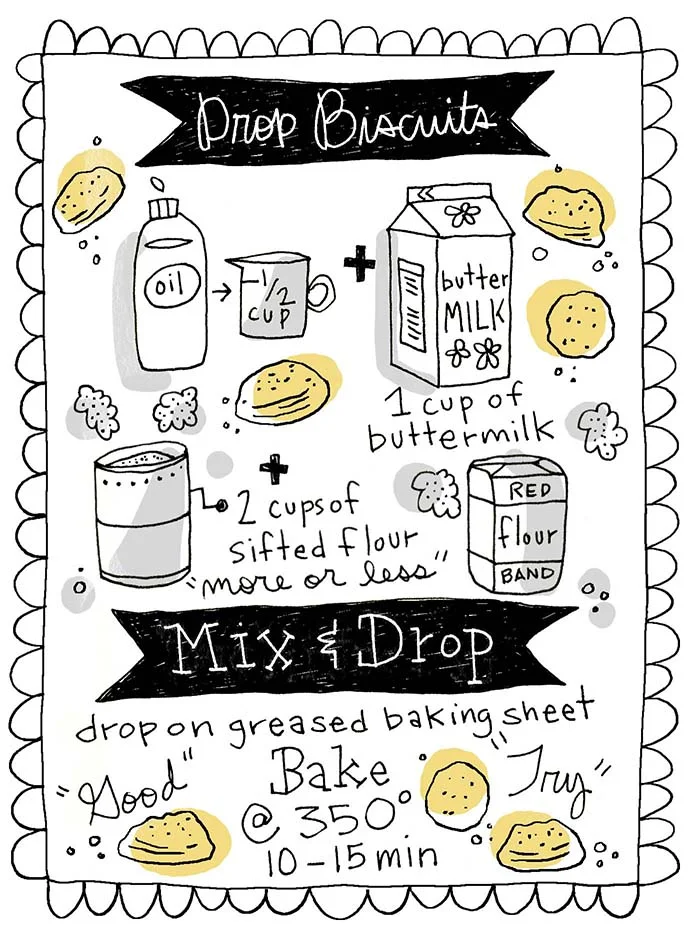 Drop Biscuits
oil
1/2
cup
+
butter
MILK
1 cup of
buttermilk
+
2 cups of
sifted flour
"more or less"
RED
flour
BAND
Mix & Drop
drop on greased baking sheet
"Good"
Bake
@ 350°
10-15 min
"Try"